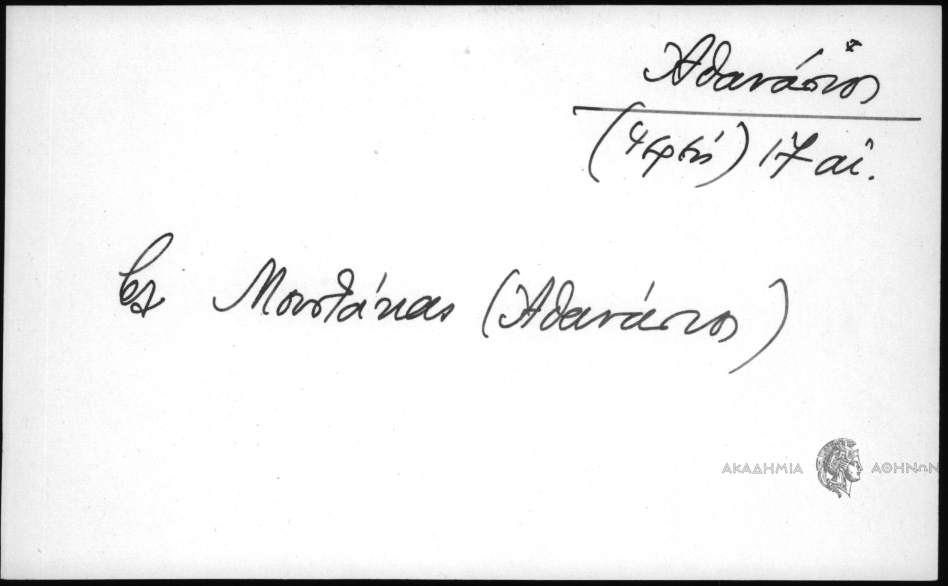 Ἀθανάσιος
(ἱερεύς) 17 αἰ.
βλ Μουστάκας (Ἀθανάσιος)
ΑΚΑΔΗΜΙΑ ΑΘΗΝΩΝ